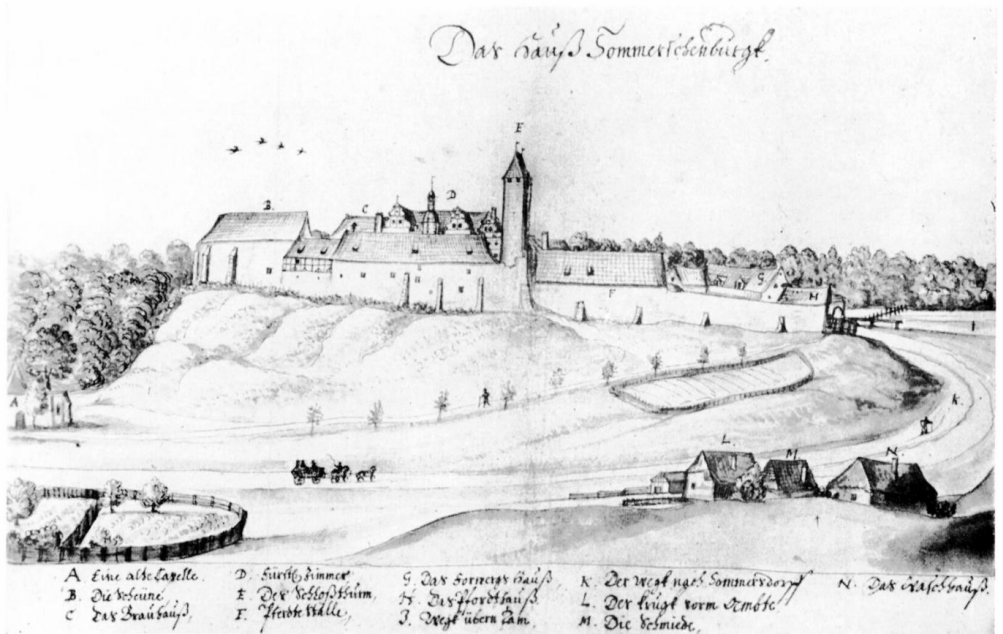 Das Hauß Sommerschenburgk.
E
B.
C
D
G
F
H
A
k
L
M
N.
A Eine alte Capelle.
B. Die Scheune
C Das Brauhauß,
D. Fürstl. Zimmer
E. Der Schloßthurm,
F. Pferde Ställe,
G. Das Hauß,
H. Das Pfordthauß.
I. Wegk übern Dam,
K. Der Wegk nach Sommersdorff
L. Der Krugk vorm Ambte,
M. Die Schmiede,
N. Das Waschhauß.